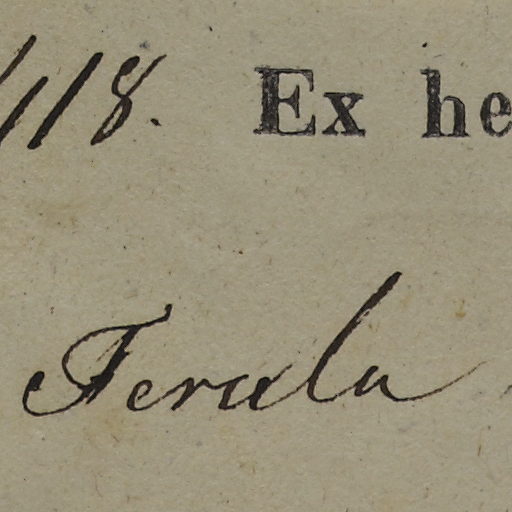 118. Ex he
Ferula